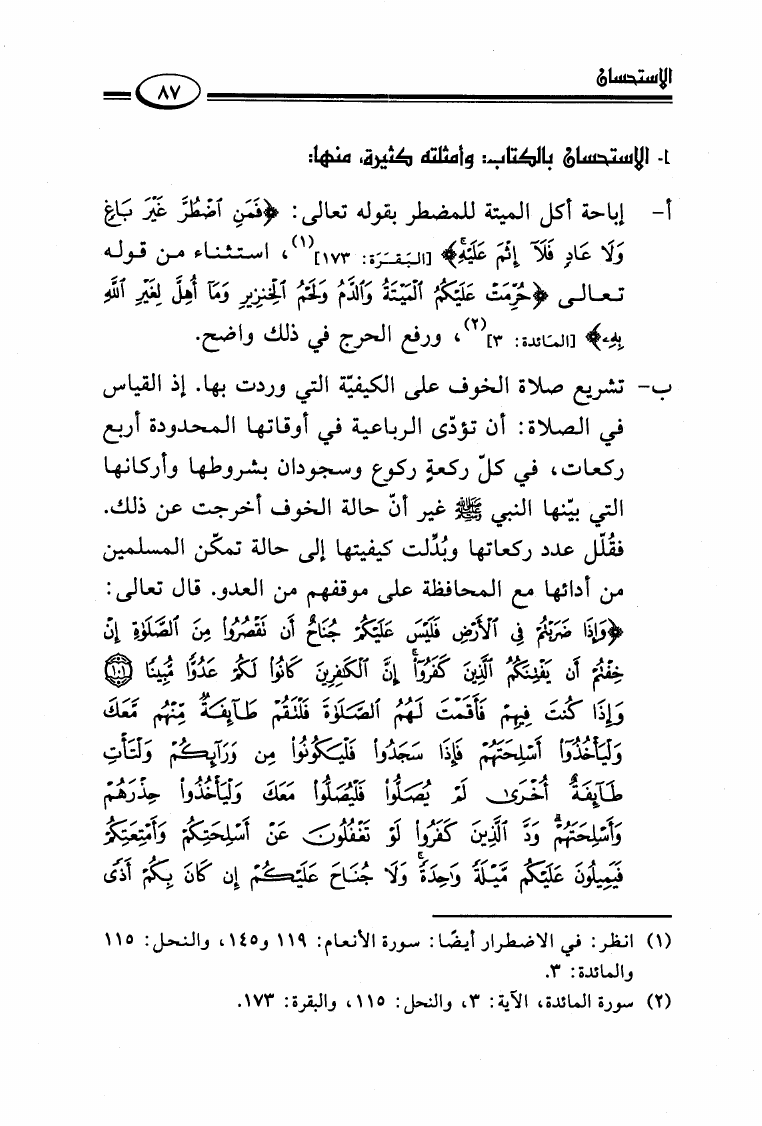 الاستحسان
٨٧
١- الاستحسان بالكتاب: وأمثلته كثيرة، منها:
أ- إباحة أكل الميتة للمضطر بقوله تعالى: ﴿فَمَنِ ٱضْطُرَّ غَيْرَ بَاغٍ
وَلَا عَادٍ فَلَآ إِثْمَ عَلَيْهِ﴾ [البَقَرَة: ١٧٣](١)، استثناء من قوله
تعالى ﴿حُرِّمَتْ عَلَيْكُمُ ٱلْمَيْتَةُ وَٱلدَّمُ وَلَحْمُ ٱلْخِنزِيرِ وَمَآ أُهِلَّ لِغَيْرِ ٱللَّهِ
بِهِۦ﴾ [المَائدة: ٣](٢)، ورفع الحرج في ذلك واضح.
ب- تشريع صلاة الخوف على الكيفيّة التي وردت بها. إذ القياس
في الصلاة: أن تؤدّى الرباعية في أوقاتها المحدودة أربع
ركعات، في كلّ ركعةٍ ركوع وسجودان بشروطها وأركانها
التي بيّنها النبي ﷺ غير أنّ حالة الخوف أخرجت عن ذلك.
فقُلّل عدد ركعاتها وبُدِّلت كيفيتها إلى حالة تمكّن المسلمين
من أدائها مع المحافظة على موقفهم من العدو. قال تعالى:
﴿وَإِذَا ضَرَبْتُمْ فِى ٱلْأَرْضِ فَلَيْسَ عَلَيْكُمْ جُنَاحٌ أَن نَقْصُرُوا۟ مِنَ ٱلصَّلَوٰةِ إِنْ
خِفْتُمْ أَن يَفْتِنَكُمُ ٱلَّذِينَ كَفَرُوٓا۟ إِنَّ ٱلْكَٰفِرِينَ كَانُوا۟ لَكُمْ عَدُوًّا مُّبِينًا ١٠١
وَإِذَا كُنتَ فِيهِمْ فَأَقَمْتَ لَهُمُ ٱلصَّلَوٰةَ فَلْتَقُمْ طَآئِفَةٌ مِّنْهُم مَّعَكَ
وَلْيَأْخُذُوٓا۟ أَسْلِحَتَهُمْ فَإِذَا سَجَدُوا۟ فَلْيَكُونُوا۟ مِن وَرَآئِكُمْ وَلْتَأْتِ
طَآئِفَةٌ أُخْرَىٰ لَمْ يُصَلُّوا۟ فَلْيُصَلُّوا۟ مَعَكَ وَلْيَأْخُذُوا۟ حِذْرَهُمْ
وَأَسْلِحَتَهُمْ وَدَّ ٱلَّذِينَ كَفَرُوا۟ لَوْ تَغْفُلُونَ عَنْ أَسْلِحَتِكُمْ وَأَمْتِعَتِكُمْ
فَيَمِيلُونَ عَلَيْكُم مَّيْلَةً وَٰحِدَةً وَلَا جُنَاحَ عَلَيْكُمْ إِن كَانَ بِكُمْ أَذًى
(١) انظر: في الاضطرار أيضًا: سورة الأنعام: ١١٩ و١٤٥، والنحل: ١١٥
والمائدة: ٣.
(٢) سورة المائدة، الآية: ٣، والنحل: ١١٥، والبقرة: ١٧٣.